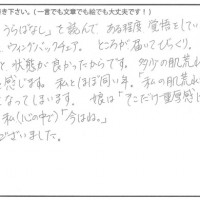 き下さい。（一言でも文章でも絵でも大丈夫です！）
うらばなし」を読んで ある程度 覚悟をしてい
ウィングバックチェア。 ところが届いてびっくり。
と 状態が良かったからです。 多少の肌荒れ
を感じます。 私とほぼ同い年。「私の肌荒れ
なってしまいます。 娘は「そこだけ重厚感
私(心の中で)「今はね。」
ございました。